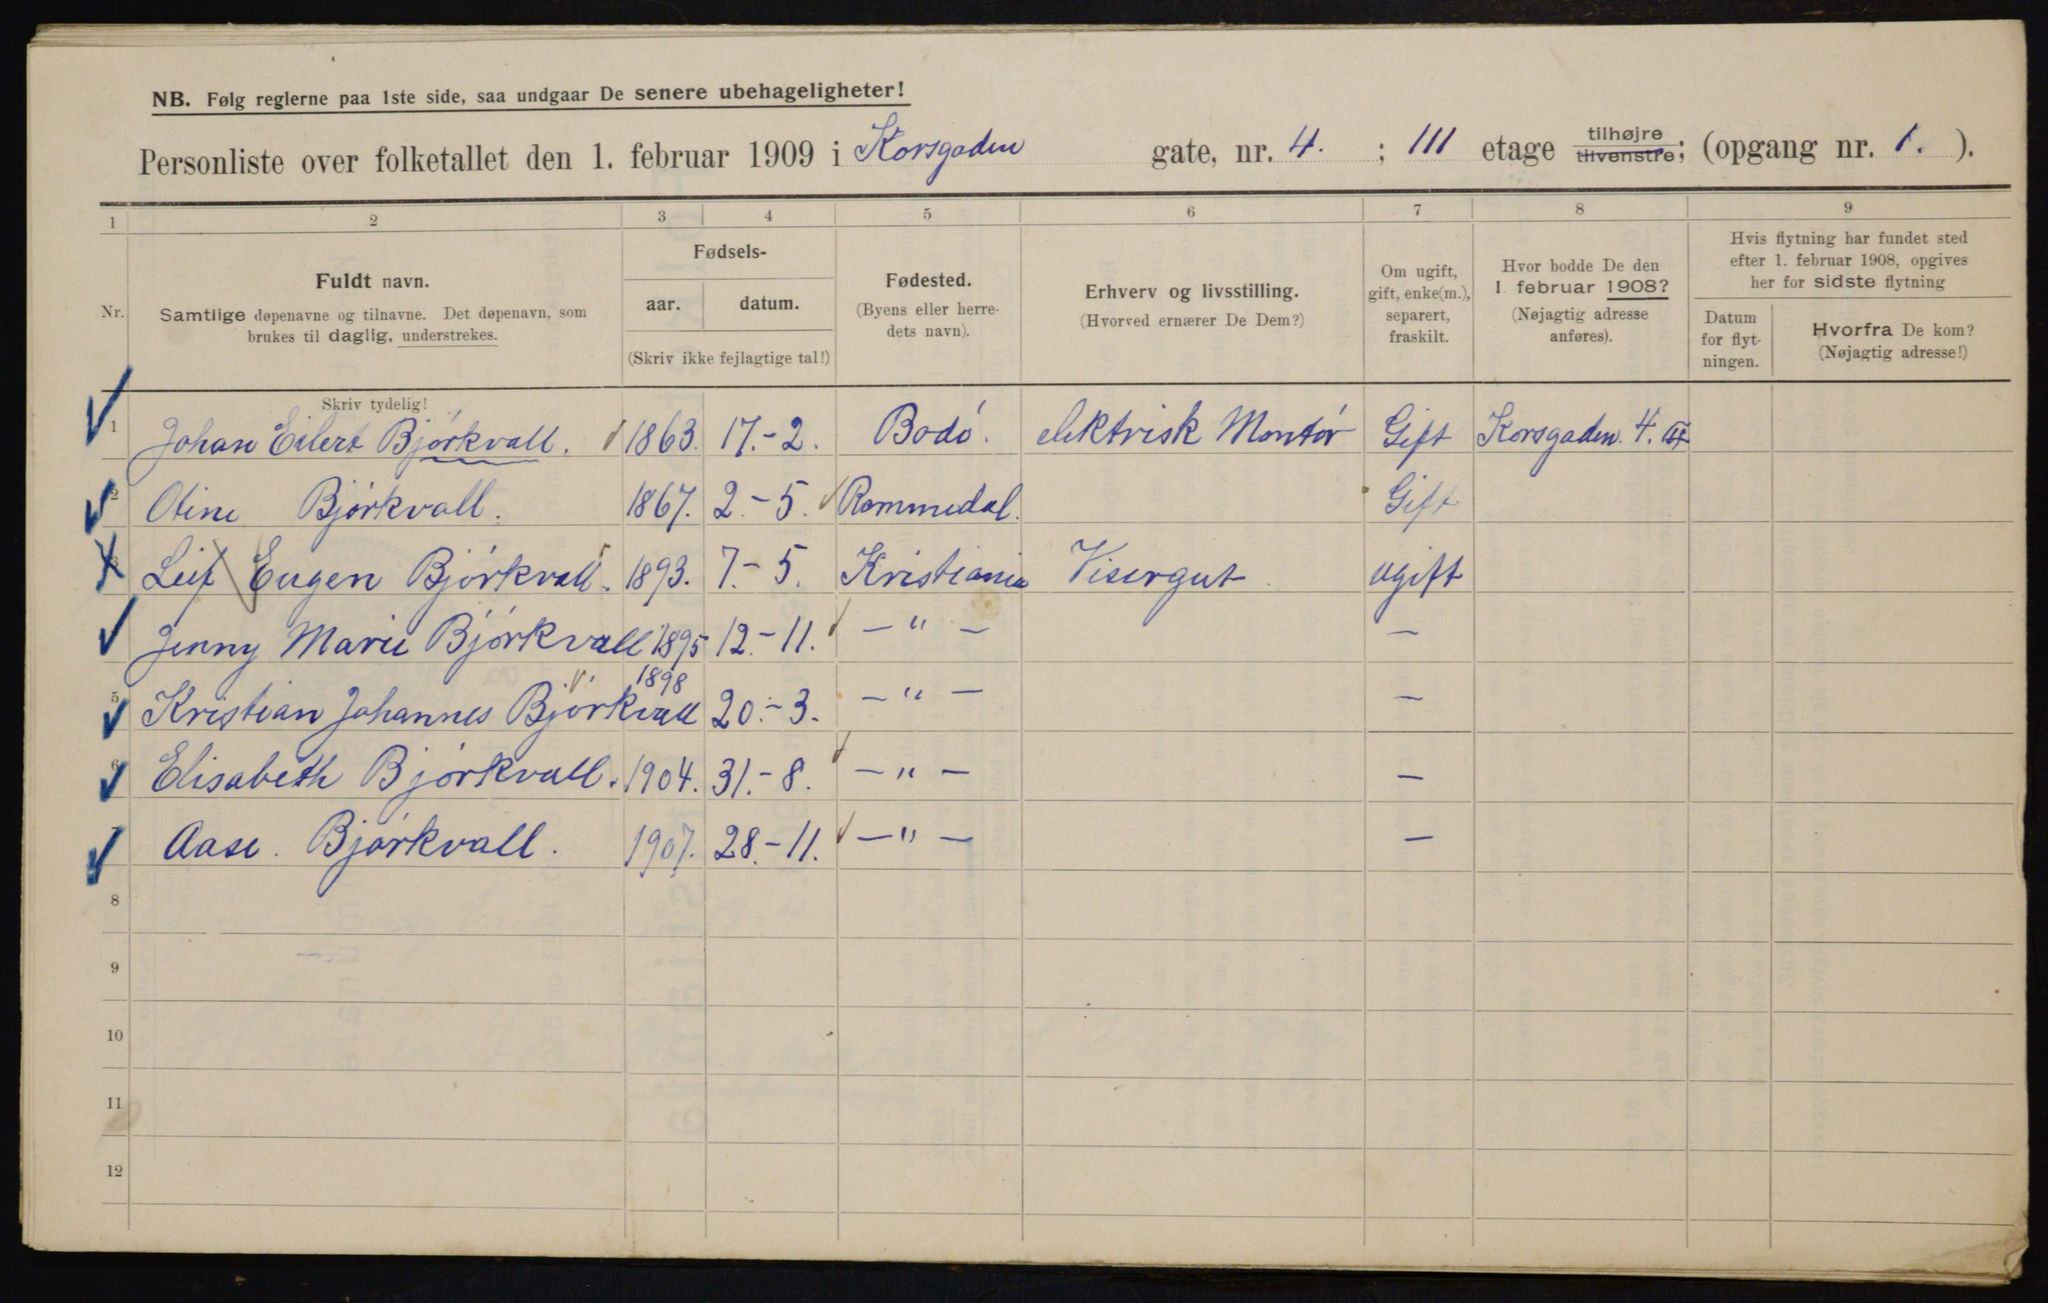 NB. Følg reglerne paa 1ste side, saa undgaar De senere ubehageligheter!
Personliste over folketallet den 1. februar 1909 i Korsgaden gate, nr. 4. ; III etage tilhøjre tilvenstre; (opgang nr. 1. ).
1 2 3 4 5 6 7 8 9
Nr.
Fuldt navn.
Samtlige døpenavne og tilnavne. Det døpenavn, som
brukes til daglig, understrekes.
Skriv tydelig!
Fødsels-
aar. datum.
(Skriv ikke fejlagtige tal!)
Fødested.
(Byens eller herre-
dets navn).
Erhverv og livsstilling.
(Hvorved ernærer De Dem?)
Om ugift,
gift, enke(m.),
separert,
fraskilt.
Hvor bodde De den
1 februar 1908?
(Nøjagtig adresse
anføres).
Hvis flytning har fundet sted
efter 1. februar 1908, opgives
her for sidste flytning
Datum
for flyt-
ningen.
Hvorfra De kom?
(Nøjagtig adresse!)
1 Johan Eilert Bjórkvall. 1863. 17.-2. Bodó. elektrisk Montór Gift Korsgaden. 4. III
2 Otine Bjórkvall. 1867. 2.-5. Rommedal. Gift
3 Leif Eugen Bjórkvall. 1893. 7.-5. Kristiania Visergut. ugift
Jenny Marie Bjórkvall 1895 12.-11. —"— —
5 Kristian Johannes Bjórkvall 1898 20.-3. —"— —
6 Elisabeth Bjórkvall. 1904. 31.-8. —"— —
7 Aase. Bjórkvall. 1907. 28.-11. —"— —
8
9
10
11
12